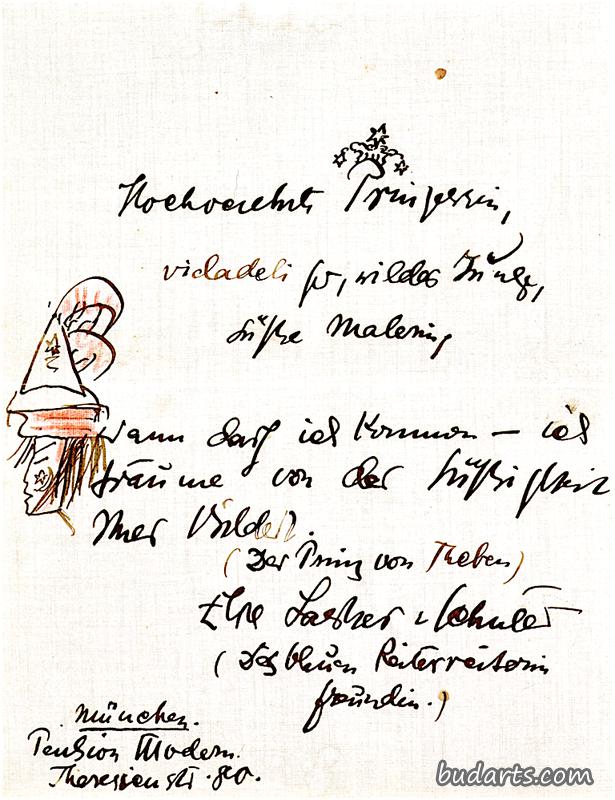 Hochverehrte Prinzessin,
wildes Junge,
süße Malerin,
Wann darf ich kommen — ich
träume von der Süßigkeit
Ihrer Bilder.
(Der Prinz von Theben)
Else Lasker-Schüler
(Des blauen Reiterreiterin
freundin.)
München.
Pension Modern.
Theresienstr. 80.
budarts.com